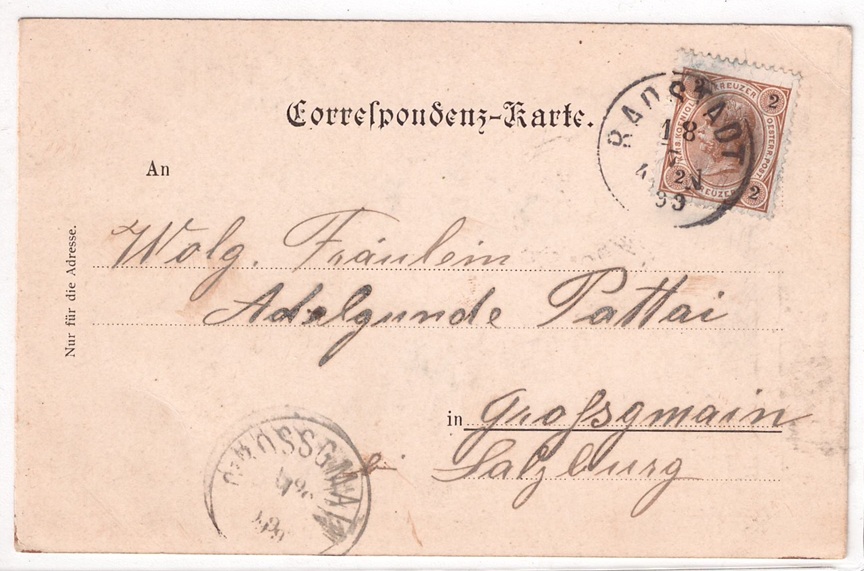 Correspondenz-Karte.
2 KREUZER 2
OESTERR. POST
2 KREUZER 2
RADSTADT
18
99
An
Nur für die Adresse.
Wolg. Fräulein
Adelgunde Pattai
in Grossgmain
bei Salzburg
GROSSGMAIN